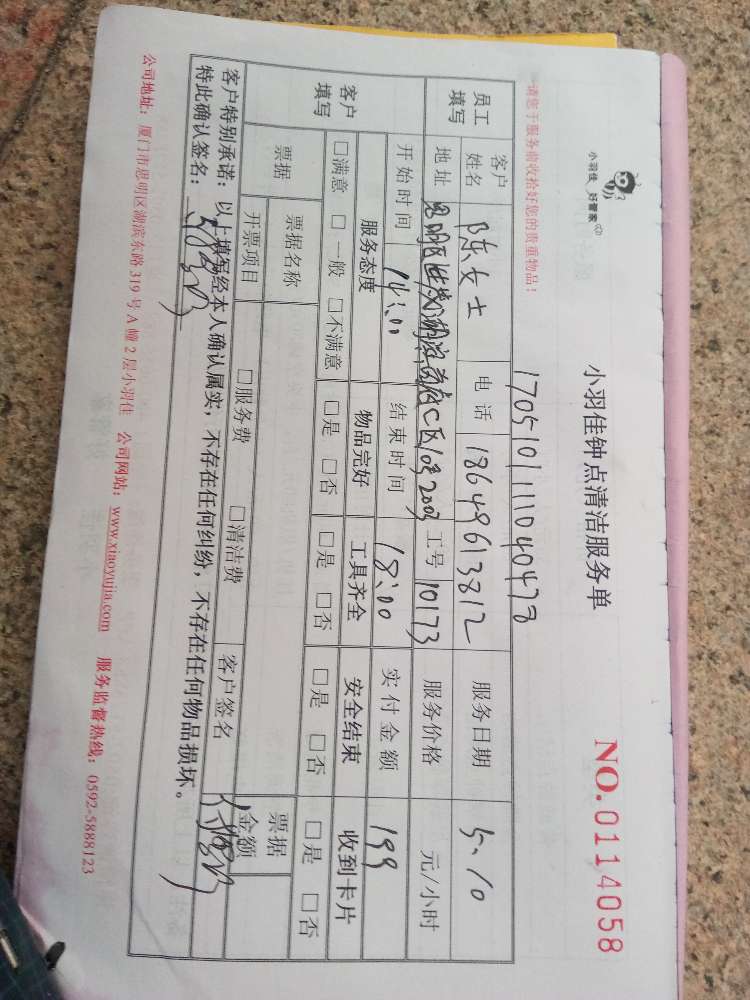 小羽佳 好管家
小羽佳钟点清洁服务单
NO.0114058
请您于服务前收拾好您的贵重物品!
170510111040478
员工填写 客户姓名 陈女士 电话 18649613812 服务日期 5.10
地址 C区103 2003 工号 10173 服务价格 元/小时
开始时间 14:00 结束时间 18:00 实付金额 199
客户填写 服务态度 物品完好 工具齐全 安全结束 收到卡片
□满意 □一般 □不满意 □是 □否 □是 □否 □是 □否 □是 □否
票据 票据名称 票据金额
开票项目 □服务费 □清洁费 客户签名
客户特别承诺:以上填写经本人确认属实,不存在任何纠纷,不存在任何物品损坏。
特此确认签名:
公司地址:厦门市思明区湖滨东路319号A幢2层小羽佳 公司网站:www.xiaoyujia.com 服务监督热线:0592-5888123